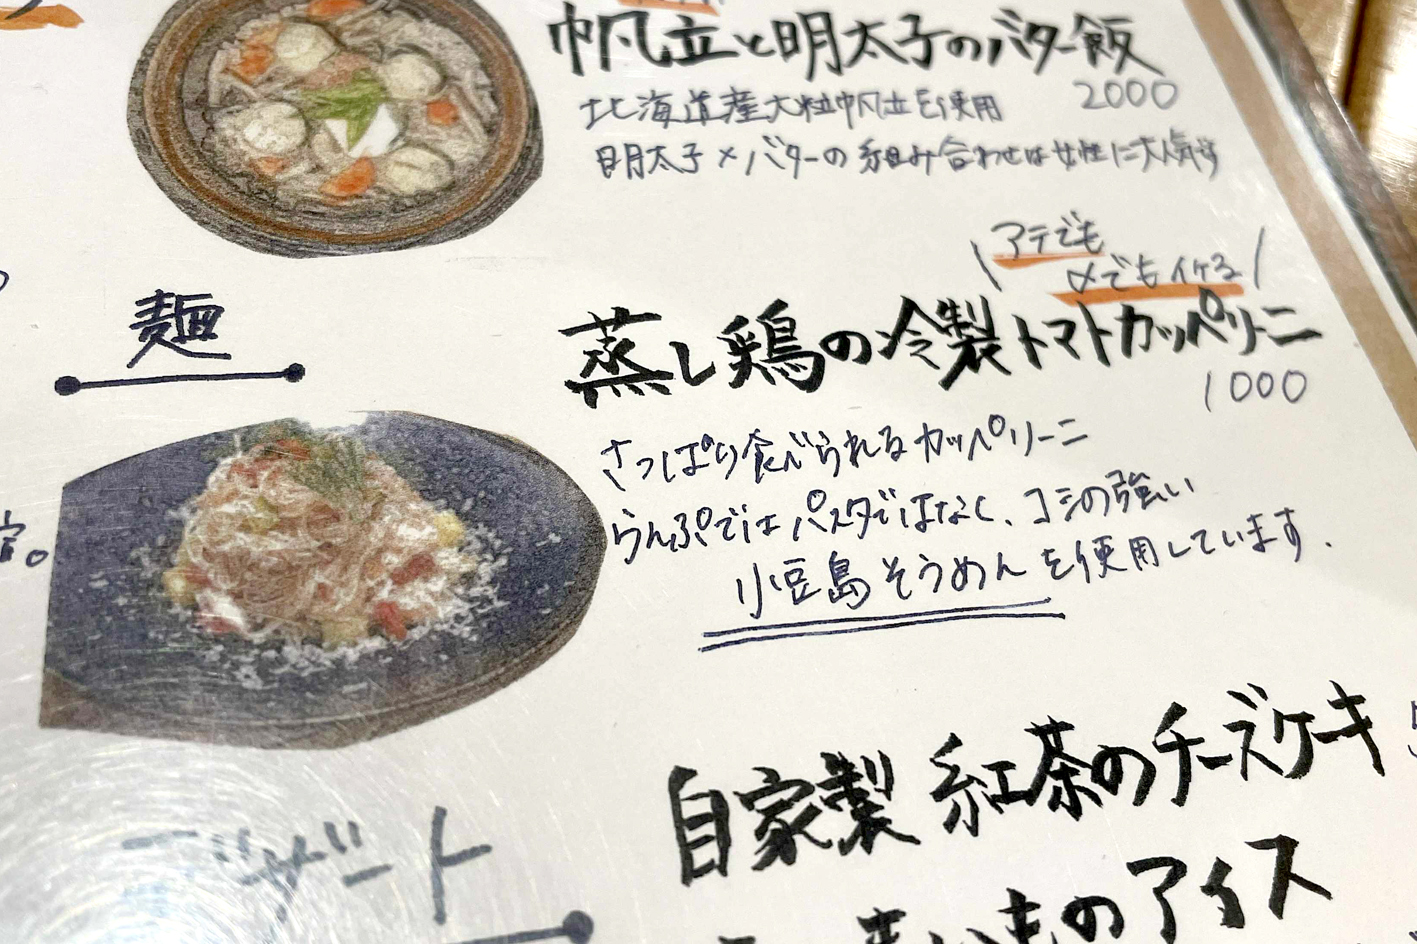 帆立と明太子のバター飯
2000
北海道産大粒帆立を使用
明太子×バターの組み合わせは女性に大人気す
アテでも
〆でもイケる
麺
蒸し鶏の冷製トマトカッペリーニ
1000
さっぱり食べられるカッペリーニ
らんぷではパスタではなく、コシの強い
小豆島そうめんを使用しています.
自家製 紅茶のチーズケーキ
デザート
のアイス